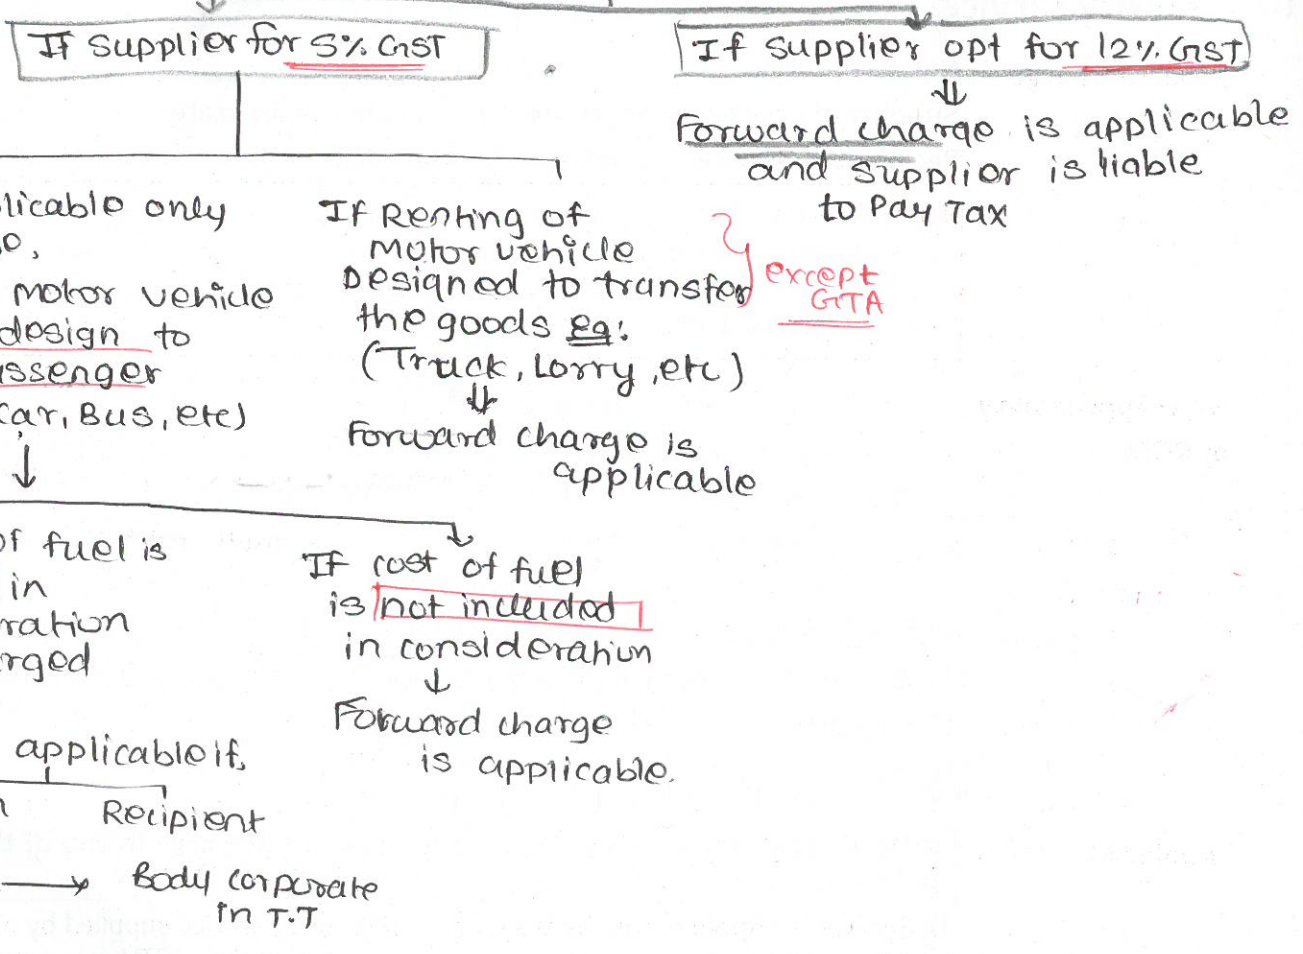 If supplier for 5% GST
If supplier opt for 12% GST
Forward charge is applicable
and supplier is liable
to Pay Tax
licable only
motor vehicle
design to
ssenger
car, Bus, etc)
If Renting of
Motor vehicle
Designed to transfer
the goods Eg:
(Truck, Lorry, etc)
Forward charge is
applicable
except
GTA
of fuel is
in
ration
rged
If cost of fuel
is not included
in consideration
Forward charge
is applicable.
applicable if,
Recipient
Body corporate
in T.T